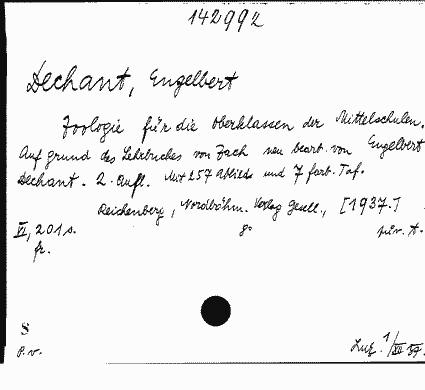 142992
Dechant, Engelbert
Zoologie für die Oberklassen der Mittelschulen.
Auf grund des Lehrbuches von Zach neu bearb. von Engelbert
Dechant. 2. Aufl. Mit 257 Abbild. und 7 farb. Taf.
Reichenberg, Nordböhm. Verlag Gesell., [1937.]
VI, 201 s. 8° priv. A.
fr.
S
P.v.